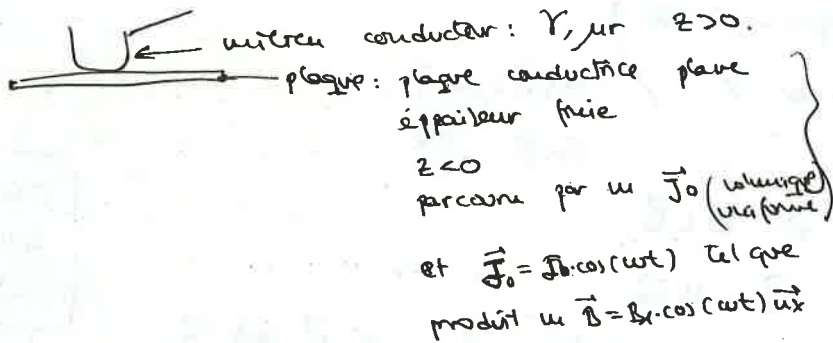 milieu conducteur : γ, μr z>0.
plaque : plaque conductrice plane
éppaisseur finie
z<0
parcouru par un J⃗0 (volumique uniforme)
et J⃗0 = J0.cos(ωt) tel que
produit un B⃗ = B1.cos(ωt) u⃗x